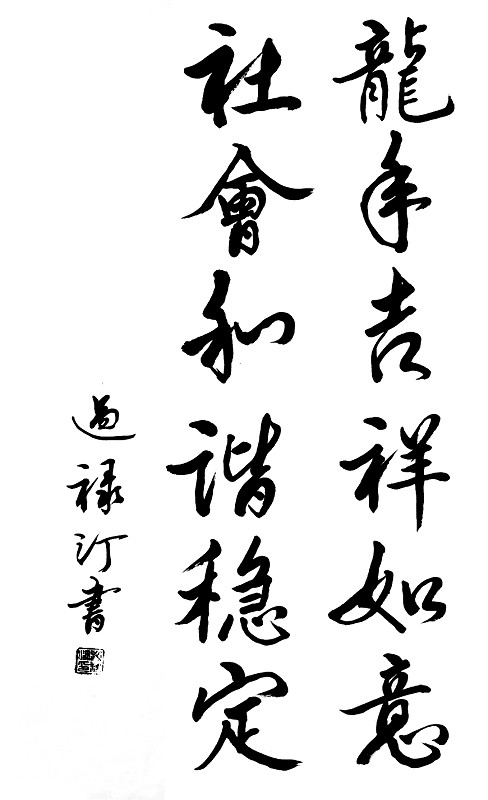 龍年吉祥如意
社會和谐稳定
過禄汀書